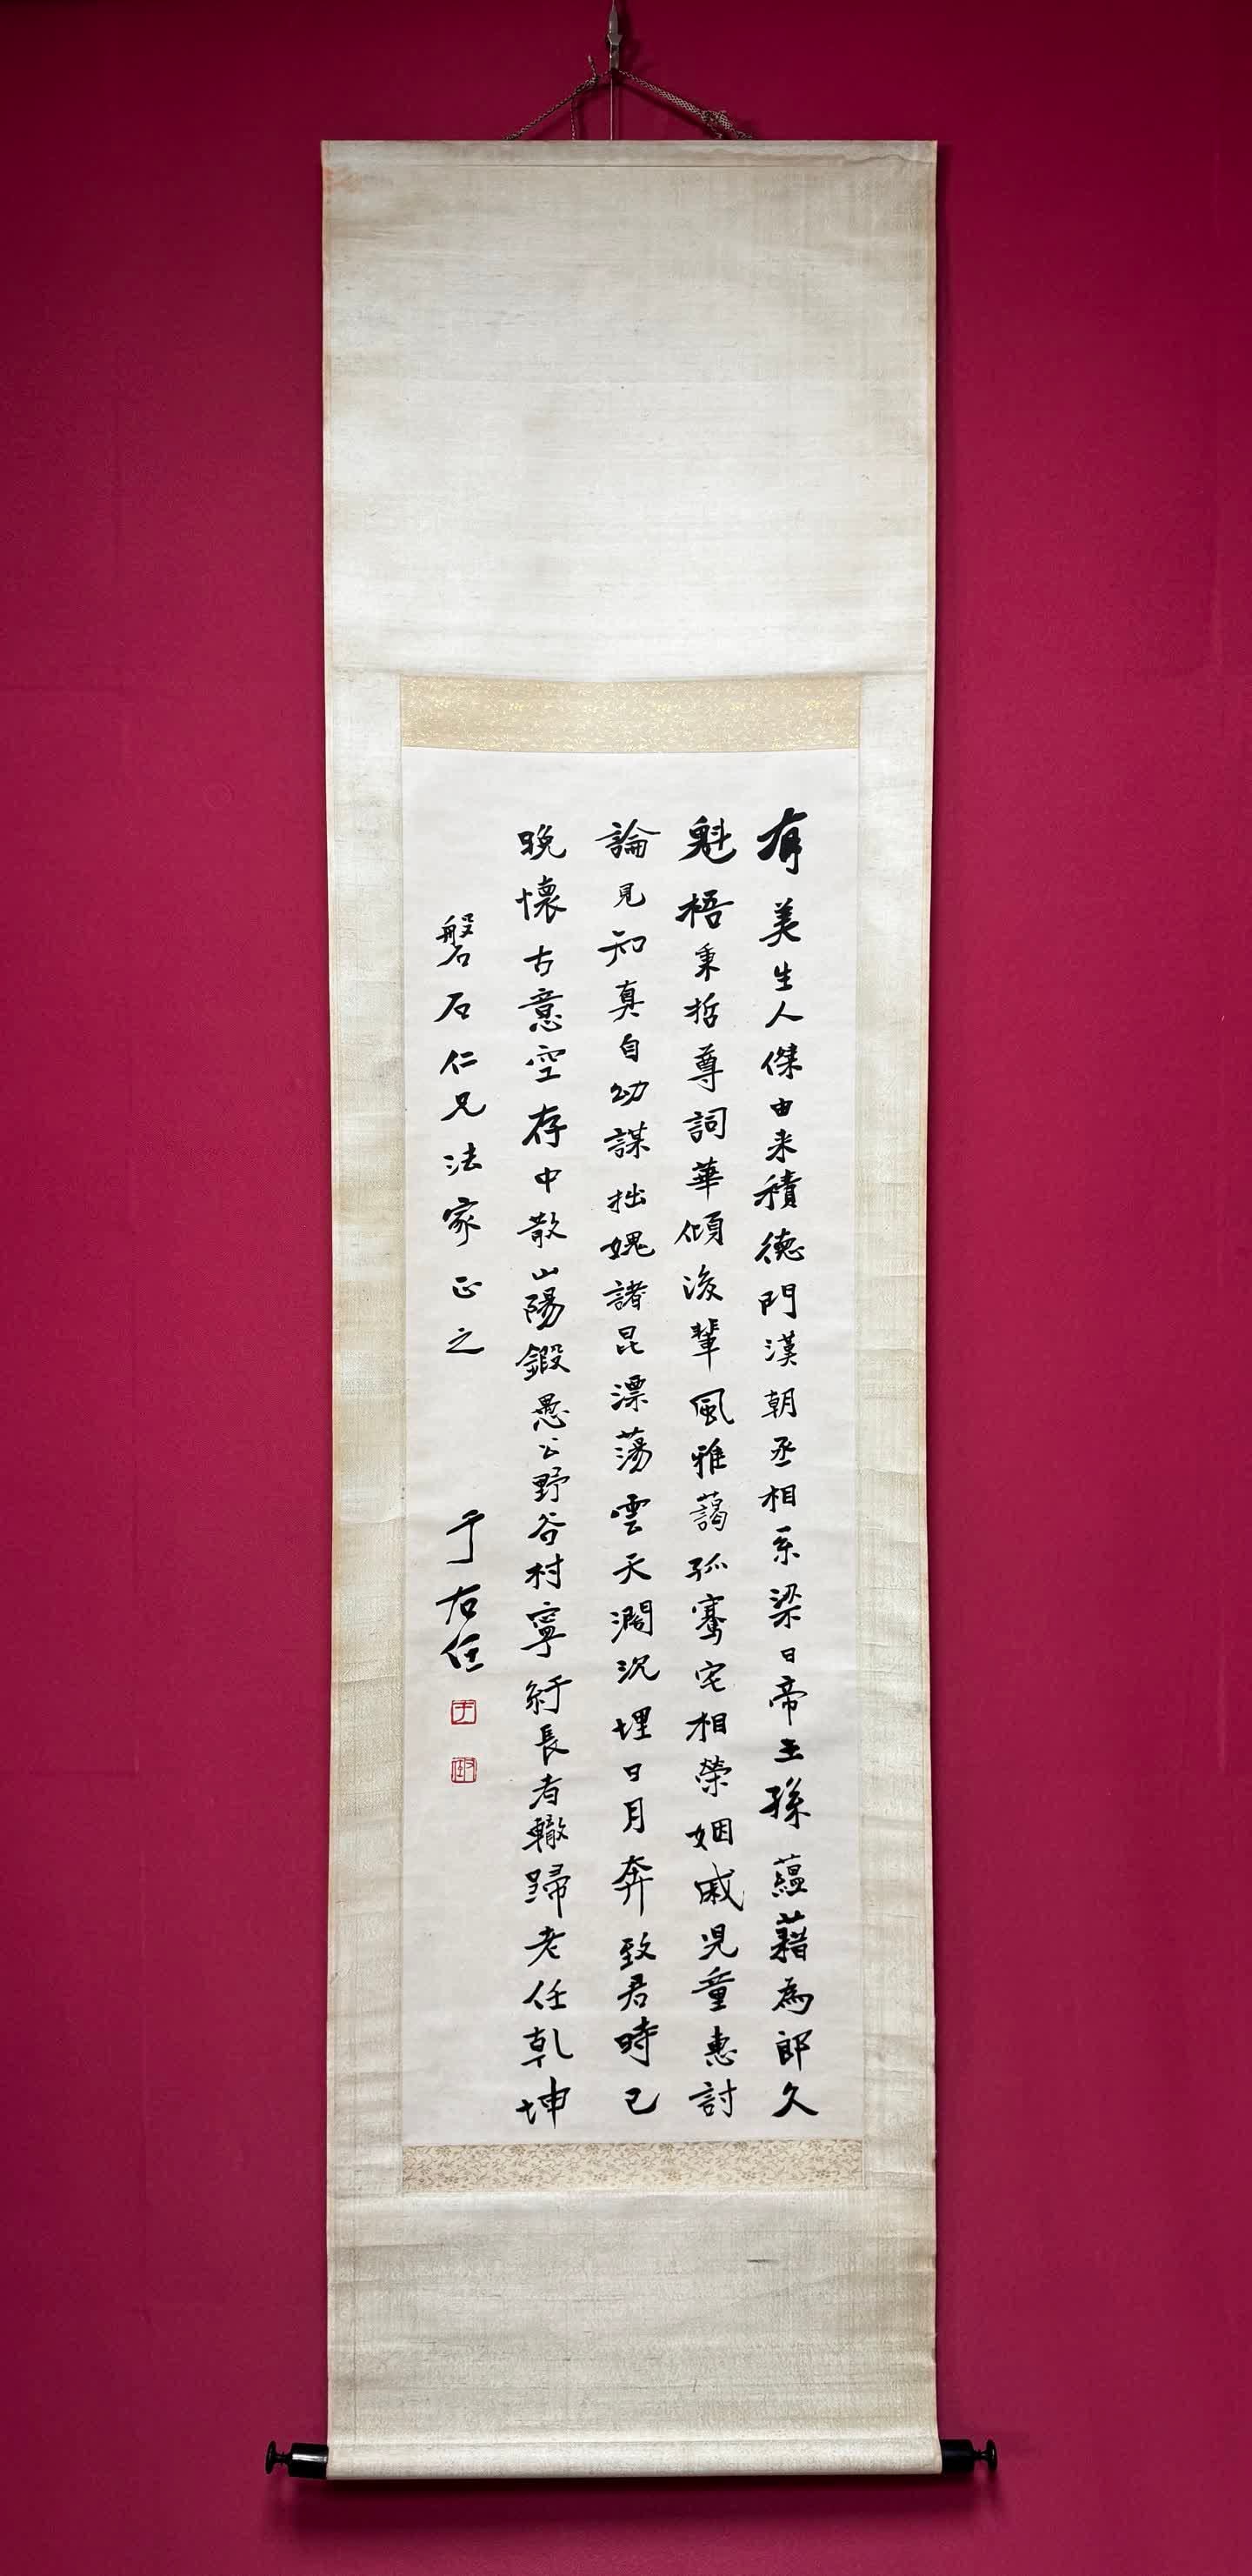 有美生人傑由来積德門漢朝丞相系梁日帝王孫蘊藉為郎久
魁梧秉哲尊詞華傾後輩風雅藹孤鶱宅相榮姻戚児童惠討
論見知真自幼謀拙媿諸昆漂蕩雲天濶沉埋日月奔致君時已
晚懷古意空存中散山陽鍛愚公野谷村寧紆長者轍歸老任乾坤
磐石仁兄法家正之
于右任
于